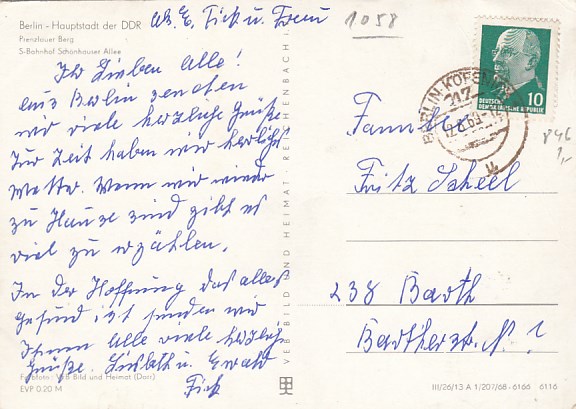 Berlin - Hauptstadt der DDR
Prenzlauer Berg
S-Bahnhof Schönhauser Allee
Abs. E. Fick u. Frau
1058
Ihr Lieben Alle!
aus Berlin senden
wir viele herzliche Grüße
Zur Zeit haben wir herrlichst
Wetter. Wenn wir wieder
zu Hause sind gibt es
viel zu erzählen.
In der Hoffnung das alles
gesund ist senden wir
Ihnen Alle viele herzlich
Grüße. Lisbeth u. Ewald
Fick
Farbfoto: VEB Bild und Heimat (Dorr)
EVP 0.20 M
VEB BILD UND HEIMAT · REICHENBACH i.
10
DEUTSCHE
DEMOKRATISCHE REPUBLIK
BERLIN-KÖPENICK
117
u
846
1,-
Familie
Fritz Scheel
238 Barth
Bartherstr. N. 1
III/26/13 A 1/207/68-6166 6116